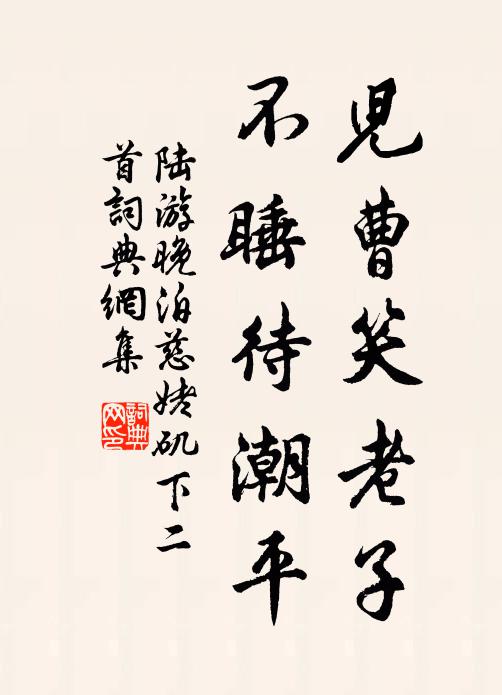 児曹笑老子
不睡待潮平
陆游晚泊慈姥矶下二
首詞典網集
詞典
网印